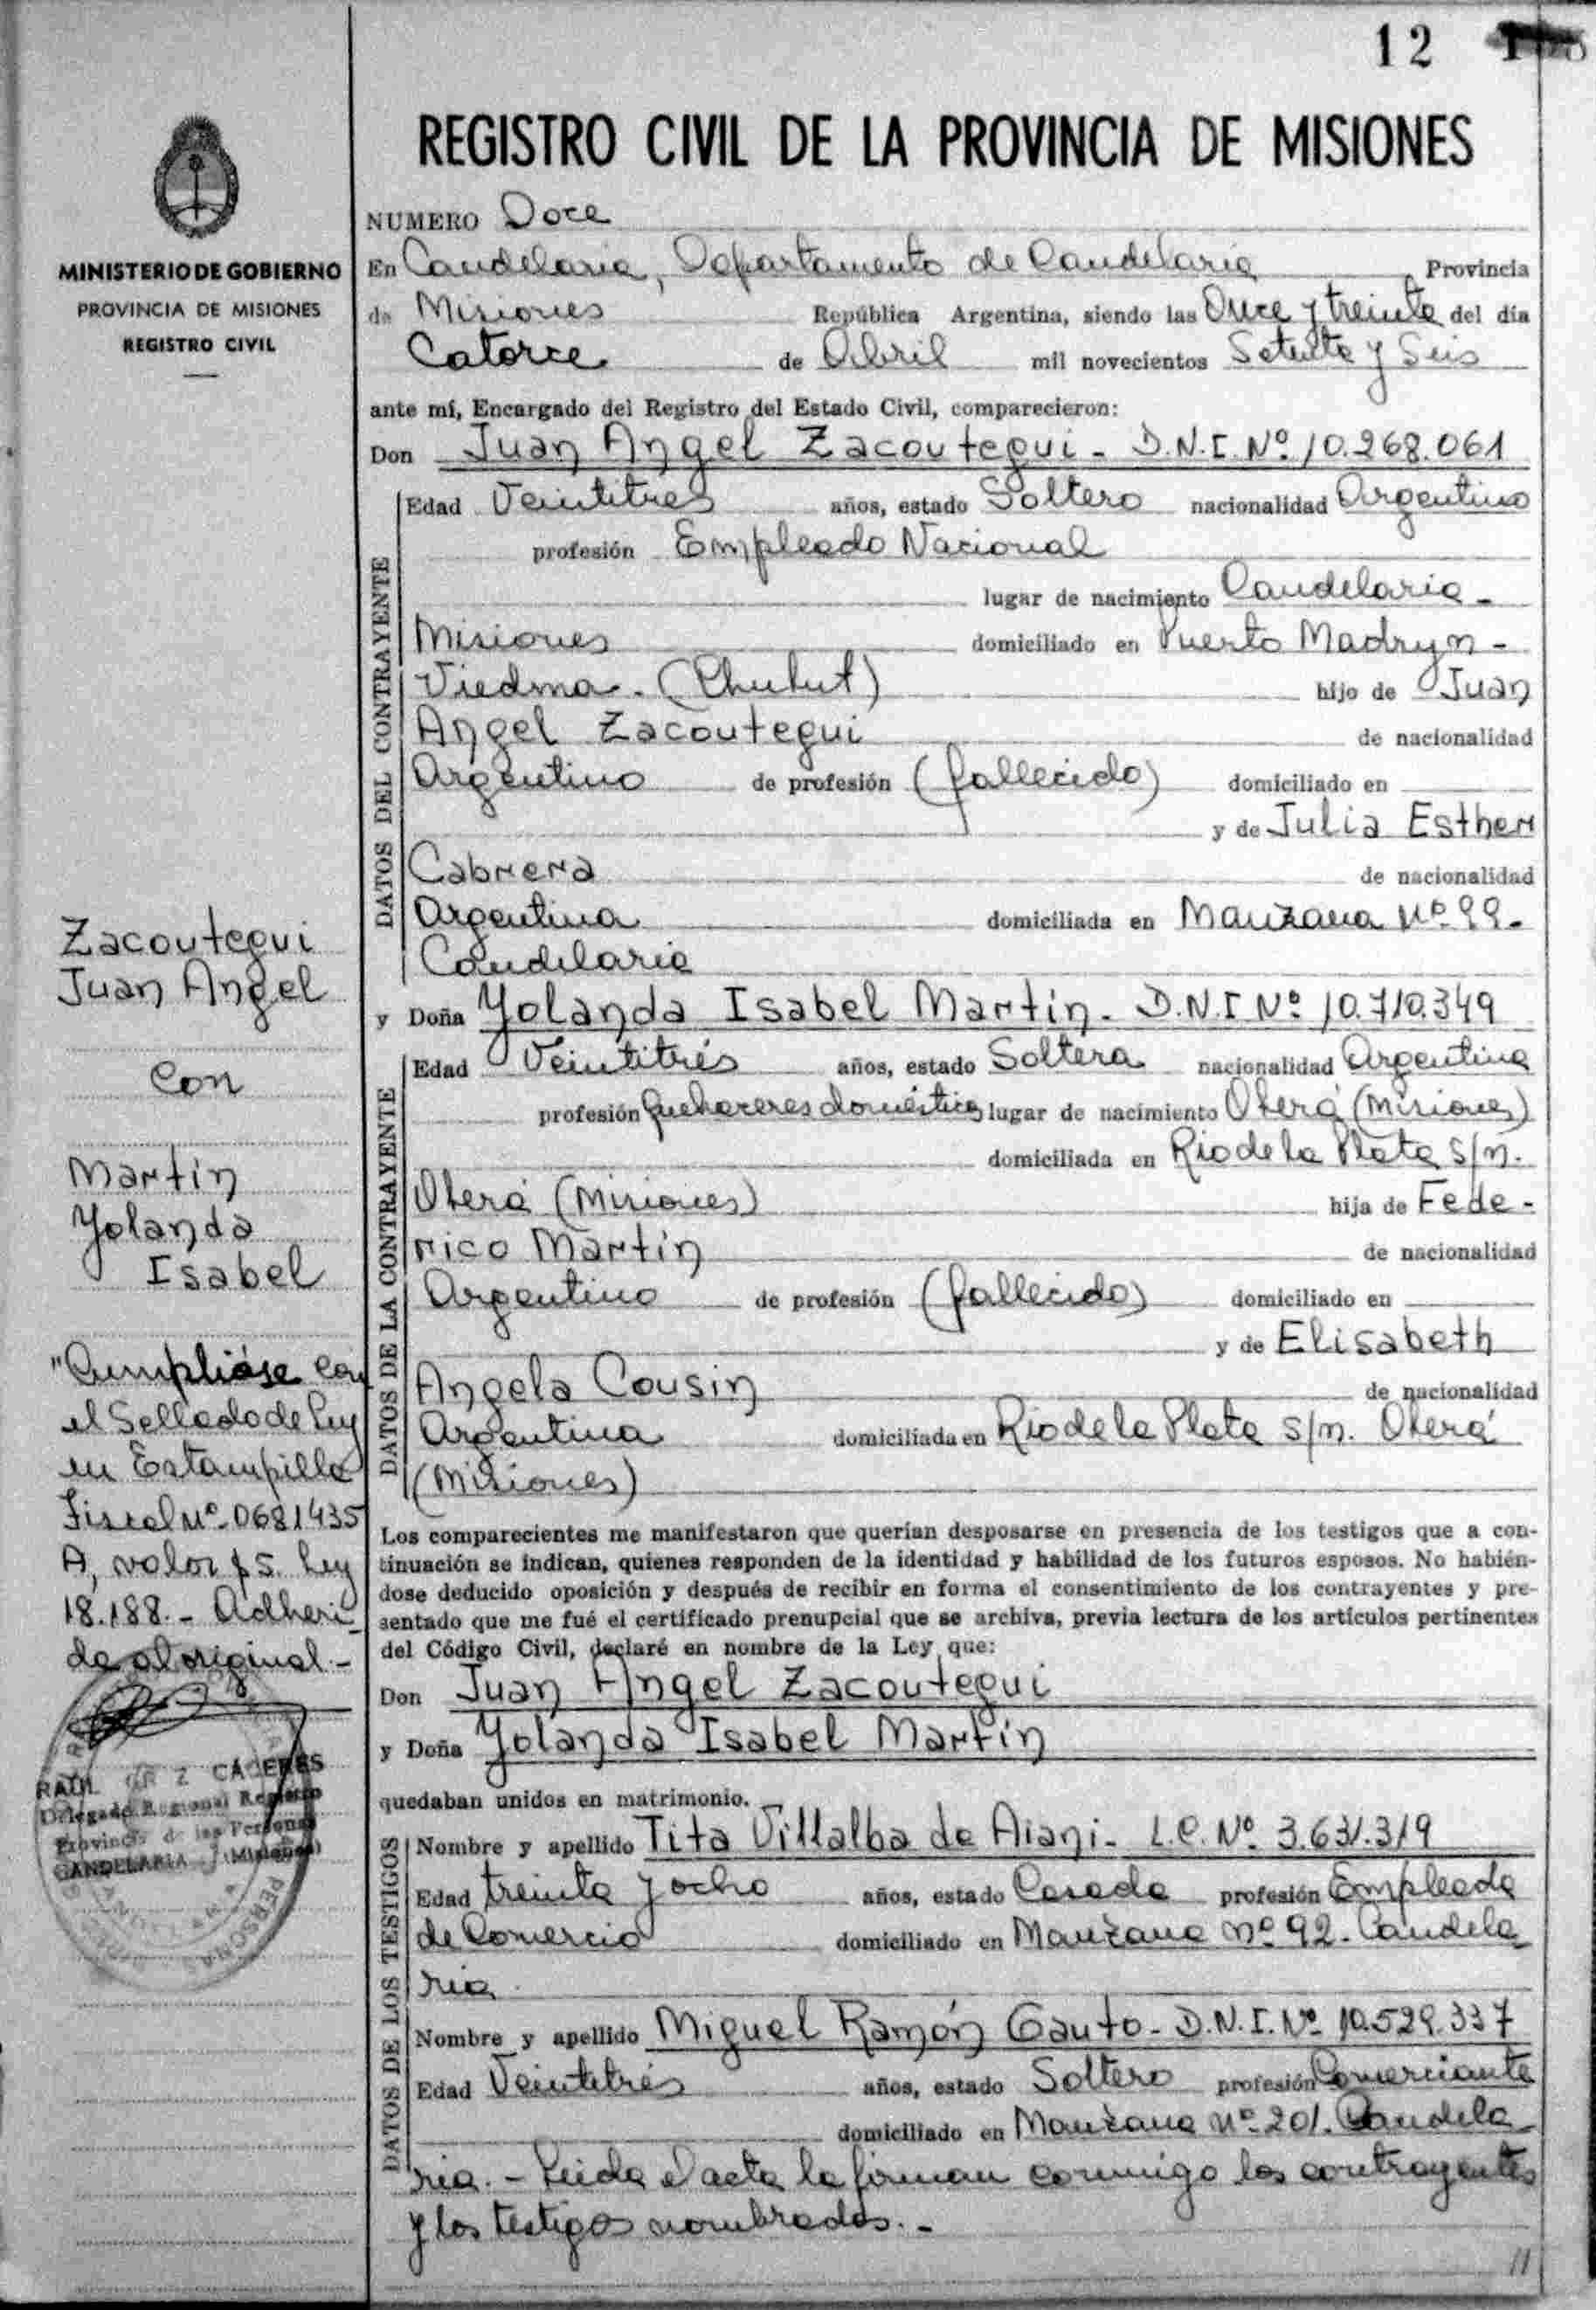 12
REGISTRO CIVIL DE LA PROVINCIA DE MISIONES
MINISTERIO DE GOBIERNO
PROVINCIA DE MISIONES
REGISTRO CIVIL
NUMERO Doce
En Candelaria, Departamento de Candelaria Provincia
de Misiones República Argentina, siendo las Once y treinta del día
Catorce de Abril mil novecientos Setenta y Seis
ante mí, Encargado del Registro del Estado Civil, comparecieron:
Don Juan Angel Zacoutegui - D.N.I. Nº 10.268.061
DATOS DEL CONTRAYENTE
Edad Veintitres años, estado Soltero nacionalidad Argentino
profesión Empleado Nacional
lugar de nacimiento Candelaria -
Misiones domiciliado en Puerto Madryn -
Viedma. (Chubut) hijo de Juan
Angel Zacoutegui de nacionalidad
Argentino de profesión (fallecido) domiciliado en
y de Julia Esther
Cabrera de nacionalidad
Argentina domiciliada en Manzana Nº 99.
Candelaria
y Doña Yolanda Isabel Martín. D.N.I Nº 10.710.349
DATOS DE LA CONTRAYENTE
Edad Veintitrés años, estado Soltera nacionalidad Argentina
profesión Quehaceres domésticos lugar de nacimiento Oberá (Misiones)
domiciliada en Rio de la Plata S/n.
Oberá (Misiones) hija de Fede-
rico Martín de nacionalidad
Argentino de profesión (fallecido) domiciliado en
y de Elisabeth
Angela Cousin de nacionalidad
Argentina domiciliada en Rio de la Plata S/n. Oberá
(Misiones)
Los comparecientes me manifestaron que querían desposarse en presencia de los testigos que a con-
tinuación se indican, quienes responden de la identidad y habilidad de los futuros esposos. No habién-
dose deducido oposición y después de recibir en forma el consentimiento de los contrayentes y pre-
sentado que me fué el certificado prenupcial que se archiva, previa lectura de los artículos pertinentes
del Código Civil, declaré en nombre de la Ley que:
Don Juan Angel Zacoutegui
y Doña Yolanda Isabel Martín
quedaban unidos en matrimonio.
DATOS DE LOS TESTIGOS
Nombre y apellido Tita Villalba de Aiani - L.C. Nº 3.631.319
Edad treinta y ocho años, estado Casada profesión Empleada
de Comercio domiciliado en Manzana Nº 92. Candela
ria.
Nombre y apellido Miguel Ramón Gauto - D.N.I. Nº 10.529.337
Edad Veintitrés años, estado Soltero profesión Comerciante
domiciliado en Manzana Nº 201. Candela
ria. - Leida el acta la firman conmigo los contrayentes
y los testigos nombrados. -
11
Zacoutegui
Juan Angel
Con
Martín
Yolanda
Isabel
"Cumplióse con
el Sellado de Ley
en Estampilla
Fiscal Nº 0681435
A, valor $5. Ley
18.188. - Adheri
da al original -
RAUL CACERES
Delegado Regional Registro
Provincia de las Personas
CANDELARIA (Misiones)